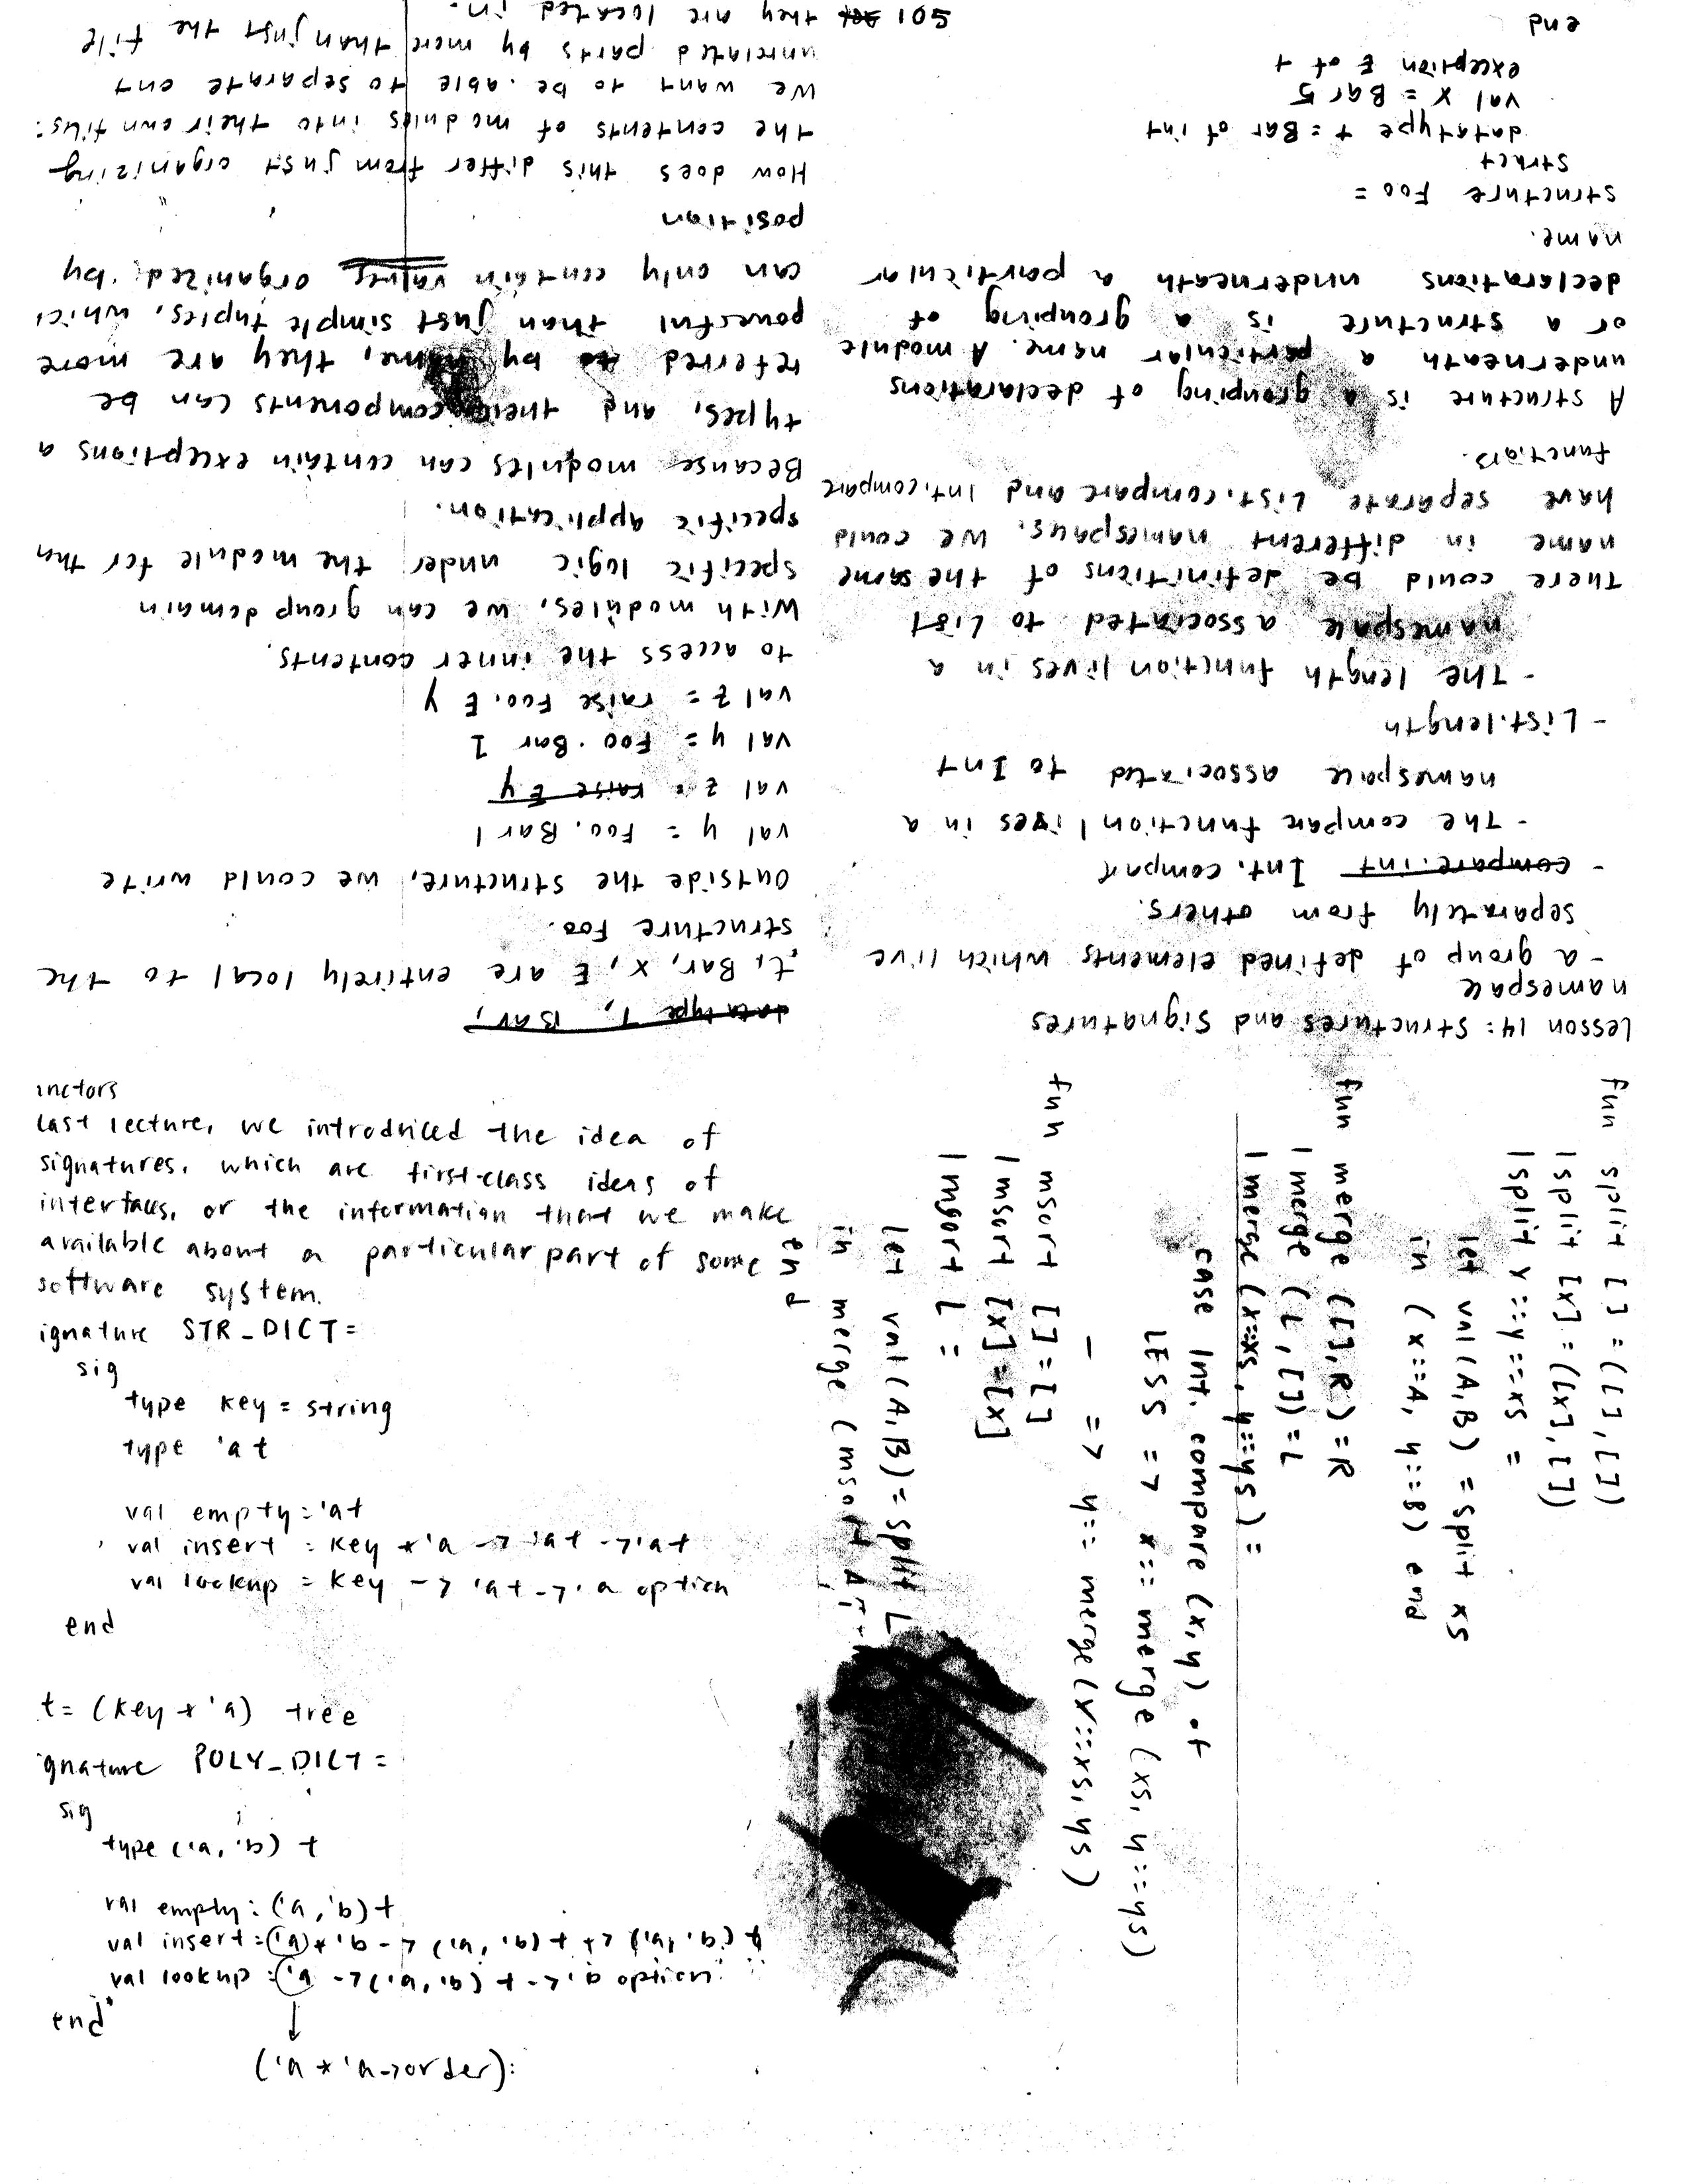 Lesson 14: Structures and Signatures
namespace
- a group of defined elements which live
separately from others.
- compare.int Int.compare
- The compare function lives in a
namespace associated to Int
- List.length
- The length function lives in a
namespace associated to List
There could be definitions of the same
name in different namespaces. We could
have separate List.compare and Int.compare
functions.
A structure is a grouping of declarations
underneath a particular name. A module
or a structure is a grouping of
declarations underneath a particular
name.
structure Foo =
struct
datatype t = Bar of int
val x = Bar 5
exception E of t
end
datatype t, Bar,
t, Bar, x, E are entirely local to the
structure Foo.
Outside the structure, we could write
val y = Foo.Bar 1
val z = raise E y
val y = Foo.Bar 1
val z = raise Foo.E y
to access the inner contents.
With modules, we can group domain
specific logic under the module for that
specific application.
Because modules can contain exceptions a
types, and their components can be
referred to by name, they are more
powerful than just simple tuples, which
can only contain values organized by
position
How does this differ from just organizing
the contents of modules into their own files?
We want to be able to separate out
unrelated parts by more than just the file
they are located in.
501
fun split [] = ([], [])
| split [x] = ([x], [])
| split x::y::xs =
let val (A,B) = split xs
in (x::A, y::B) end
fun merge ([], R) = R
| merge (L, []) = L
| merge (x::xs, y::ys) =
case Int.compare (x,y) of
LESS => x:: merge (xs, y::ys)
_ => y:: merge (x::xs, ys)
fun msort [] = []
| msort [x] = [x]
| msort L =
let val (A,B) = split L
in merge (msort A,
end
inctors
Last lecture, we introduced the idea of
signatures, which are first-class ideas of
interfaces, or the information that we make
available about a particular part of some
software system.
ignature STR_DICT =
sig
type key = string
type 'a t
val empty : 'a t
val insert : key * 'a -> 'a t -> 'a t
val lookup : key -> 'a t -> 'a option
end
t = (key * 'a) tree
ignature POLY_DICT =
sig
type ('a, 'b) t
val empty : ('a, 'b) t
val insert : ('a) * 'b ->
val lookup : 'a -> option
end
('a * 'a -> order) :